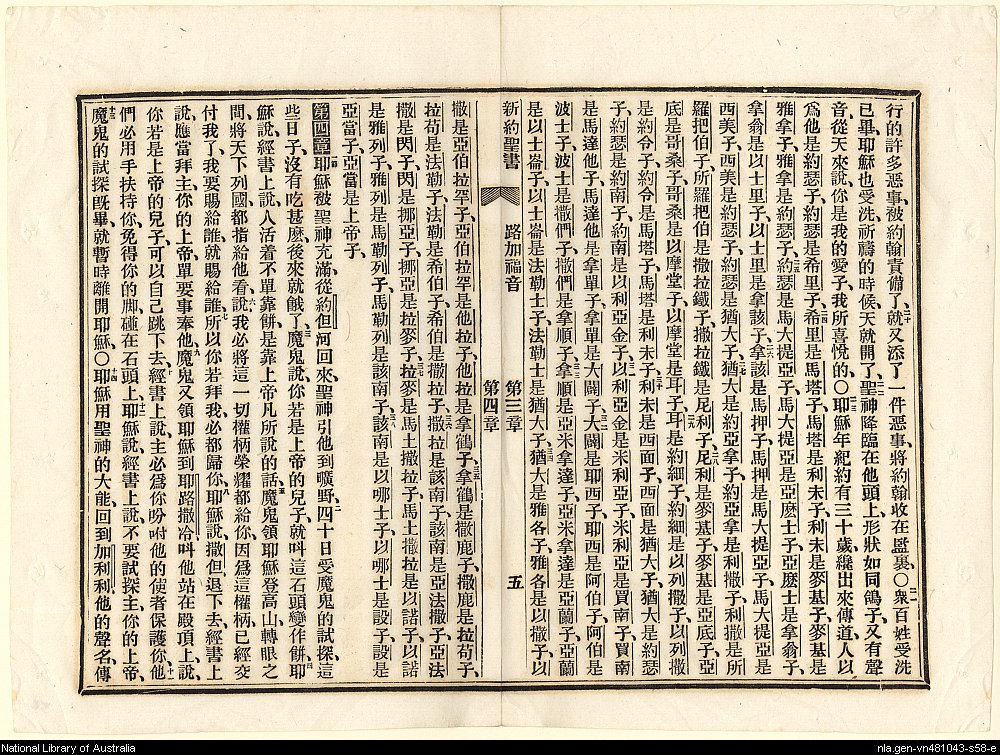 行的許多惡事、被約翰責備了、就又添了一件惡事、將約翰收在監裏、○衆百姓受洗
已畢、耶穌也受洗、祈禱的時候、天就開了、聖神降臨在他頭上、形狀如同鴿子、又有聲
音、從天來說、你是我的愛子、我所喜悅的、○耶穌年紀約有三十歲、纔出來傳道、人以
爲他是約瑟子、約瑟是希里子、希里是馬塔子、馬塔是利未子、利未是麥基子、麥基是
雅拿子、雅拿是約瑟子、約瑟是馬大提亞子、馬大提亞是亞麽士子、亞麽士是拿翁子、
拿翁是以士里子、以士里是拿該子、拿該是馬押子、馬押是馬大提亞子、馬大提亞是
西美子、西美是約瑟子、約瑟是猶大子、猶大是約亞拿子、約亞拿是利撒子、利撒是所
羅把伯子、所羅把伯是撒拉鐵子、撒拉鐵是尼利子、尼利是麥基子、麥基是亞底子、亞
底是哥桑子、哥桑是以摩堂子、以摩堂是耳子、耳是約細子、約細是以列撒子、以列撒
是約令子、約令是馬塔子、馬塔是利未子、利未是西面子、西面是猶大子、猶大是約瑟
子、約瑟是約南子、約南是以利亞金子、以利亞金是米利亞子、米利亞是買南子、買南
是馬達他子、馬達他是拿單子、拿單是大闢子、大闢是耶西子、耶西是阿伯子、阿伯是
波士子、波士是撒們子、撒們是拿順子、拿順是亞米拿達子、亞米拿達是亞蘭子、亞蘭
是以士崙子、以士崙是法勒士子、法勒士是猶大子、猶大是雅各子、雅各是以撒子、以
新約聖書 路加福音 第三章 五
第四章
撒是亞伯拉罕子、亞伯拉罕是他拉子、他拉是拿鶴子、拿鶴是撒鹿子、撒鹿是拉苟子、
拉苟是法勒子、法勒是希伯子、希伯是撒拉子、撒拉是該南子、該南是亞法撒子、亞法
撒是閃子、閃是挪亞子、挪亞是拉麥子、拉麥是馬土撒拉子、馬土撒拉是以諾子、以諾
是雅列子、雅列是馬勒列子、馬勒列是該南子、該南是以哪士子、以哪士是設子、設是
亞當子、亞當是上帝子、
第四章 耶穌被聖神充滿、從約但河回來、聖神引他到曠野、四十日受魔鬼的試探、這
些日子、沒有吃甚麽、後來就餓了、魔鬼說、你若是上帝的兒子、就呌這石頭變作餅、耶
穌說、經書上說、人活着不單靠餅、是靠上帝凡所說的話、魔鬼領耶穌登高山、轉眼之
間、將天下列國、都指給他看、說、我必將這一切權柄榮耀都給你、因爲這權柄已經交
付我了、我要賜給誰、就賜給誰、所以你若拜我、必都歸你、耶穌說、撒但退下去、經書上
說、應當拜主你的上帝、單要事奉他、魔鬼又領耶穌到耶路撒冷、呌他站在殿頂上、說、
你若是上帝的兒子、可以自己跳下去、經書上說、主必爲你吩咐他的使者保護你、他
們必用手扶持你、免得你的脚碰在石頭上、耶穌說、經書上說、不要試探主你的上帝、
魔鬼的試探旣畢、就暫時離開耶穌、○耶穌用聖神的大能、回到加利利、他的聲名傳
National Library of Australia
nla.gen-vn481043-s58-e